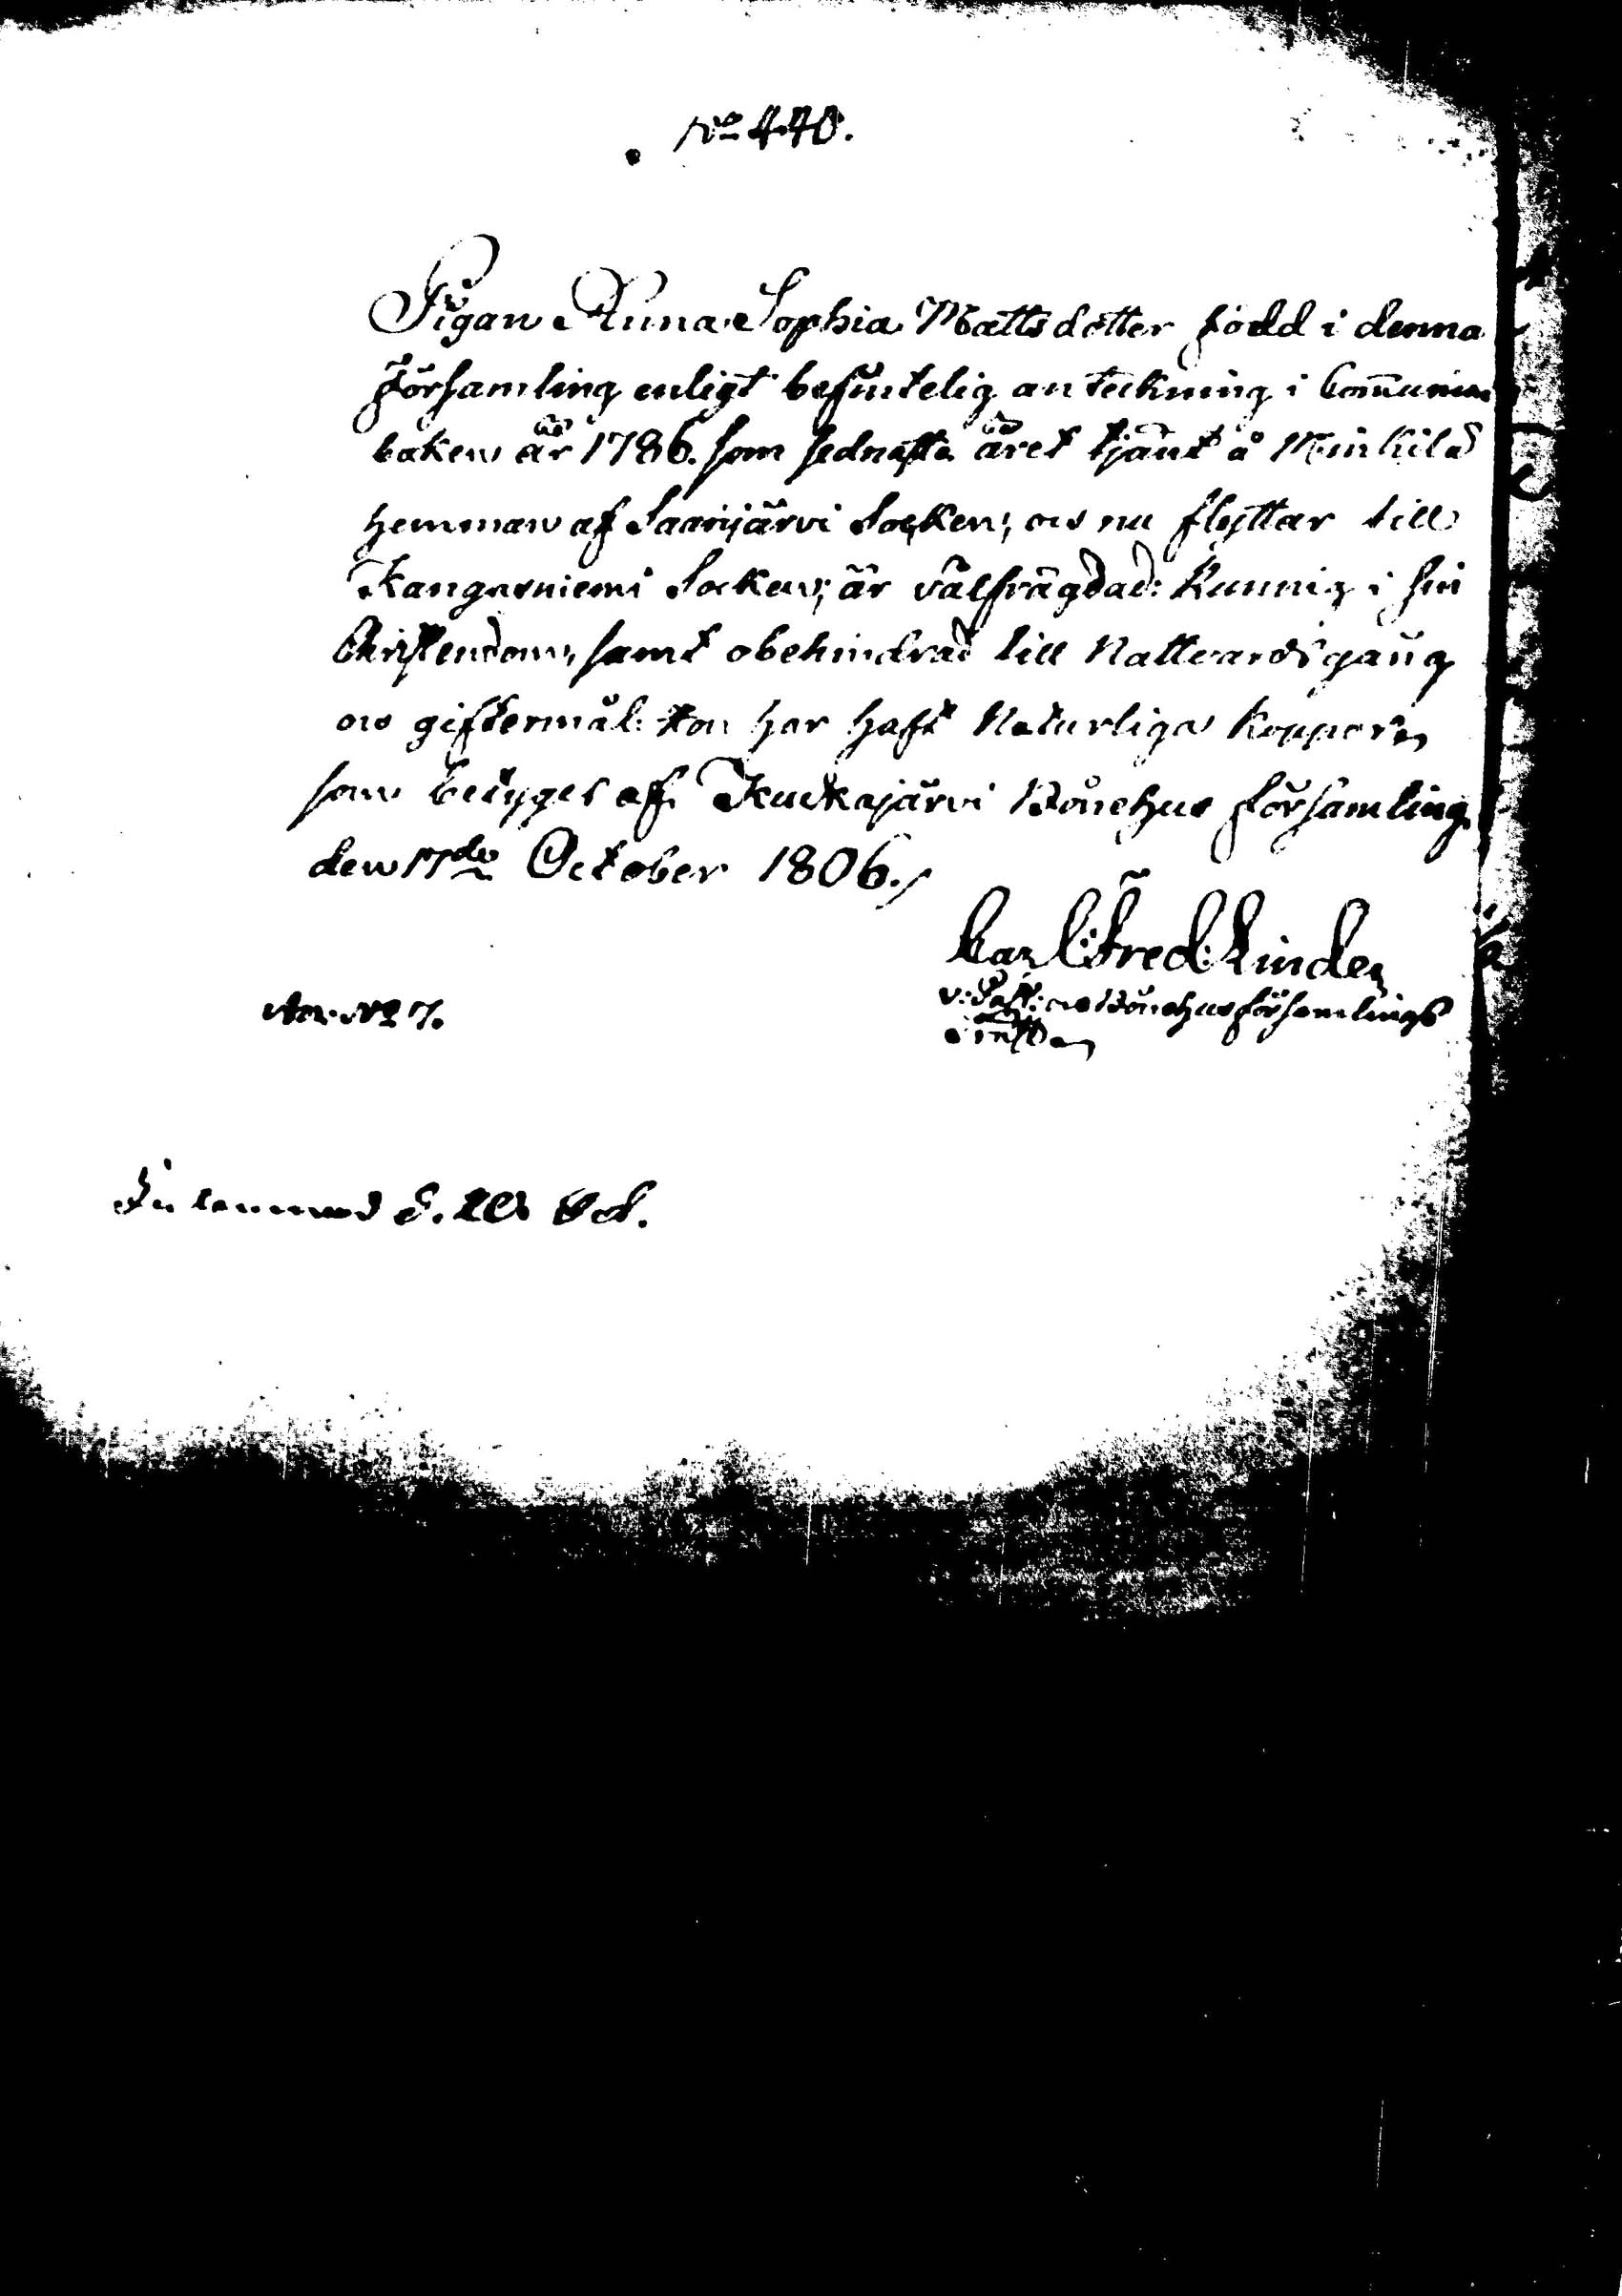 No 440.
Pigan Anna Sophia Mattsdotter född i denna
församling enligt befintelig anteckning i Communion
boken år 1786. som sednaste året tjänt å Minkilä
hemman af Saarijärvi Socken; och nu flyttar till
Kangasniemi Socken; är välfrägdad: kunnig i sin
Christendom, samt obehindrad till Nattvardsgång
och giftermål: Hon har haft Naturliga koppor
som betyges af Kuckajärvi Bönehus församling
den 17de October 1806./
Carl Fred: Linder
v: Past: Bönehusförsamlings
No 7.
Inlemnad d. Oct.